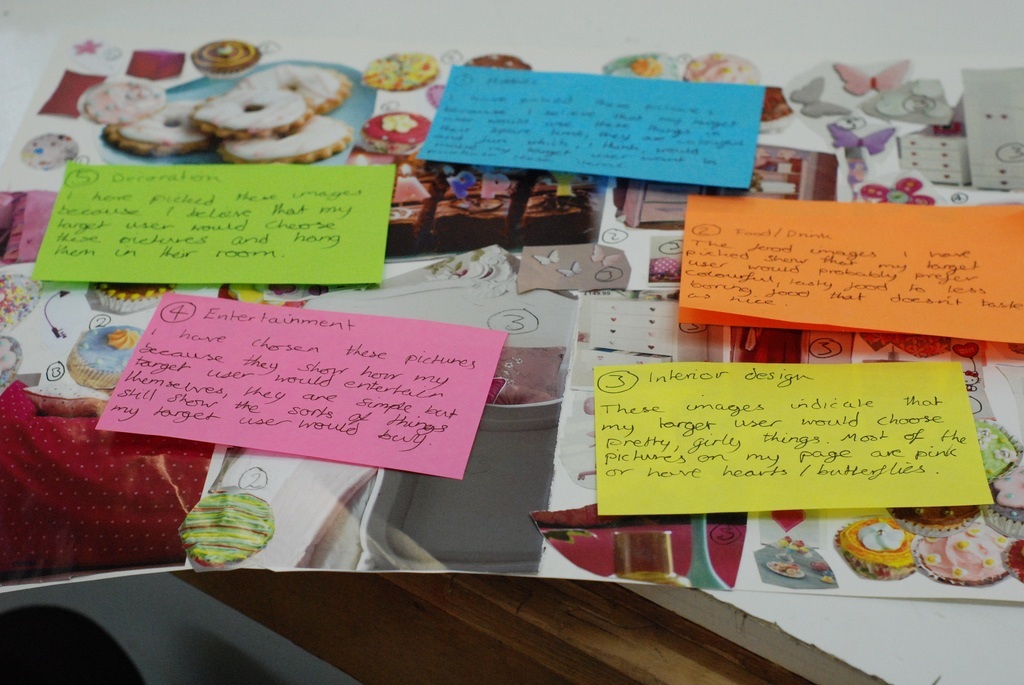 ① Hobbies
I have picked these pictures
because I believe that my target
user would these things in
their spare time, they are colourful
and fun which I think would
make my target user want to
⑤ Decoration
I have picked these images
because I believe that my
target user would choose
these pictures and hang
them in their room.
② Food/Drink
The food images I have
picked show that my target
user would probably prefer
colourful, tasty food to less
boring food that doesn't taste
as nice.
④ Entertainment
I have chosen these pictures
because they show how my
target user would entertain
themselves, they are simple but
still show the sorts of things
my target user would buy.
③ Interior design
These images indicate that
my target user would choose
pretty, girly things. Most of the
pictures on my page are pink
or have hearts/butterflies.
③
②
③
②
③
②
③